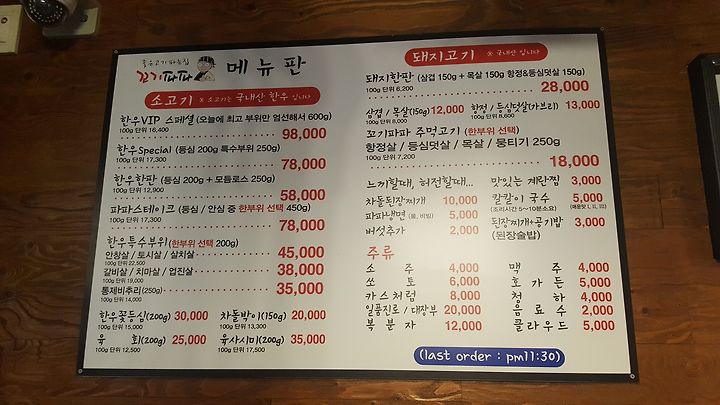 좋은고기 파는집
꼬기파파 메뉴판
소고기 ※ 소고기는 국내산 한우 입니다
한우VIP 스페셜 (오늘에 최고 부위만 엄선해서 600g)
100g 단위 16,400
98,000
한우Special (등심 200g 특수부위 250g)
100g 단위 17,300
78,000
한우한판 (등심 200g + 모듬로스 250g)
100g 단위 12,900
58,000
파파스테이크 (등심 / 안심 중 한부위 선택 450g)
100g 단위 17,300
78,000
한우특수부위(한부위 선택 200g)
안창살 / 토시살 / 살치살 45,000
100g 단위 22,500
갈비살 / 치마살 / 업진살 38,000
100g 단위 19,000
통제비추리(250g) 35,000
100g 단위 14,000
한우꽃등심(200g) 30,000 차돌박이(150g) 20,000
100g 단위 15,000 100g 단위 13,300
육 회(200g) 25,000 육사시미(200g) 35,000
100g 단위 12,500 100g 단위 17,500
돼지고기 ※ 국내산 입니다
돼지한판 (삼겹 150g + 목살 150g 항정&등심덧살 150g)
100g 단위 6,200
28,000
삼겹 / 목살(150g) 12,000 항정 / 등심덧살(가브리) 13,000
100g 단위 8,000 100g 단위 8,600
꼬기파파 주먹고기 (한부위 선택)
항정살 / 등심덧살 / 목살 / 뭉티기 250g
100g 단위 7,200
18,000
느끼할때, 허전할때... 맛있는 계란찜 3,000
차돌된장찌개 10,000 칼칼이 국수 5,000
(조리시간 5~10분소요) (매운맛 I, II, III)
파파냉면 (물, 비빔) 5,000 된장찌개+공기밥 3,000
버섯추가 2,000 (된장술밥)
주류
소 주 4,000 맥 주 4,000
쏘 토 6,000 호 가 든 5,000
카스처럼 8,000 청 하 4,000
일품진로 / 대장부 20,000 음 료 수 2,000
복 분 자 12,000 클라우드 5,000
(last order : pm11:30)